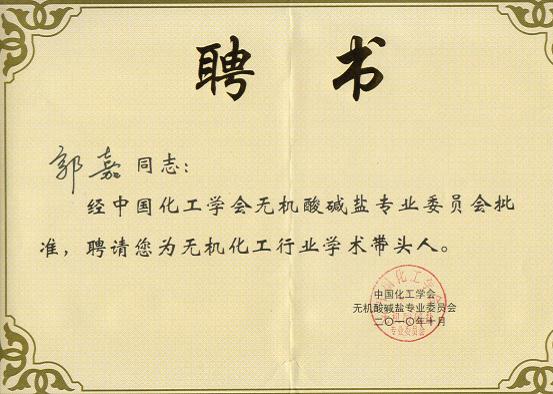 聘 书
郭嘉 同志:
经中国化工学会无机酸碱盐专业委员会批
准，聘请您为无机化工行业学术带头人。
中国化工学会
无机酸碱盐专业委员会
二〇一〇年十月
专业委员会